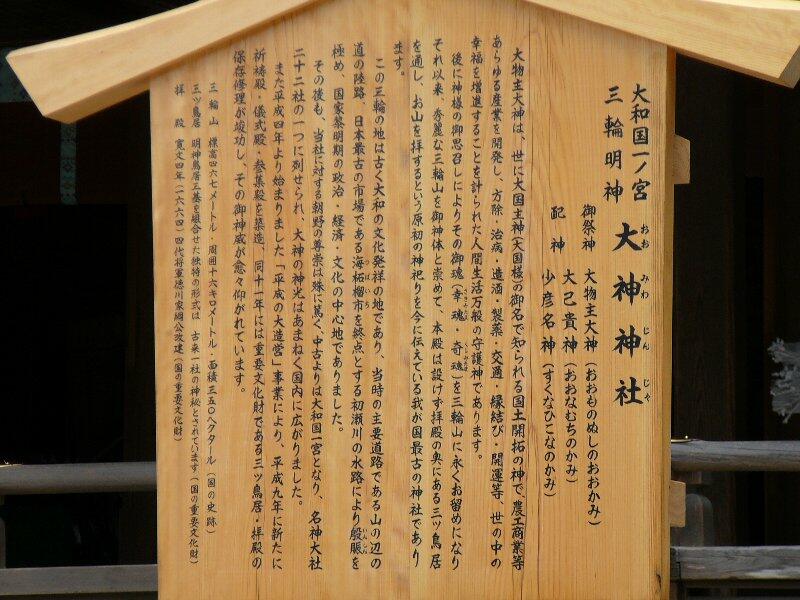 大和国一ノ宮
三輪明神
大神神社
おお みわ じん じゃ
御祭神 大物主大神(おおものぬしのおおかみ)
大己貴神(おおなむちのかみ)
配神 少彦名神(すくなひこなのかみ)
大物主大神は、世に大国主神(大国様)の御名で知られる国土開拓の神で、農工商業等
あらゆる産業を開発し、方除・治病・造酒・製薬・交通・縁結び・開運等、世の中の
幸福を増進することを計られた人間生活万般の守護神であります。
後に神様の御思召しによりその御魂(幸魂・奇魂)を三輪山に永くお留めになり
それ以来、秀麗な三輪山を御神体と崇めて、本殿は設けず拝殿の奥にある三ッ鳥居
を通し、お山を拝するという原初の神祀りを今に伝えている我が国最古の神社であり
ます。
この三輪の地は古く大和の文化発祥の地であり、当時の主要道路である山の辺の
道の陸路、日本最古の市場である海柘榴市を終点とする初瀬川の水路により殷賑を
つばいち
いんしん
極め、国家黎明期の政治・経済・文化の中心地でありました。
その後も、当社に対する朝野の尊崇は殊に篤く、中古よりは大和国一宮となり、名神大社
二十二社の一つに列せられ、大神の神光はあまねく国内に広がりました。
また平成四年より始まりました「平成の大造営」事業により、平成九年に新たに
祈祷殿・儀式殿・参集殿を築造、同十一年には重要文化財である三ッ鳥居・拝殿の
保存修理が竣功し、その御神威が愈々仰がれています。
三輪山 標高四六七メートル 周囲十六キロメートル・面積三五〇ヘクタール(国の史跡)
三ッ鳥居 明神鳥居三基を組合せた独特の形式は 古来一社の神秘とされています(国の重要文化財)
拝殿 寛文四年(一六六四)四代将軍徳川家綱公改建(国の重要文化財)